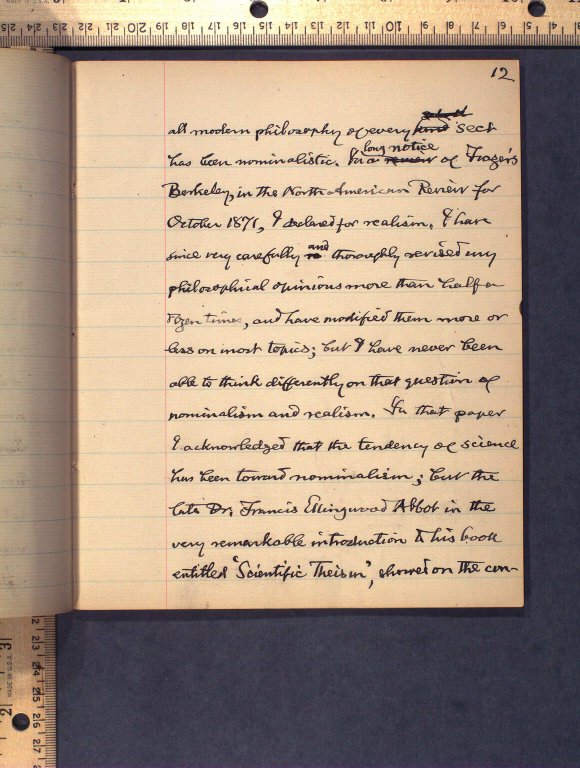 12
all modern philosophy of every kind sect
long notice
has been nominalistic. In a review of Frazer's
Berkeley, in the North American Review for
October 1871, I declared for realism. I have
and
since very carefully re thoroughly revised my
philosophical opinions more than half a
dozen times, and have modified them more or
less on most topics; but I have never been
able to think differently on that question of
nominalism and realism. In that paper
I acknowledged that the tendency of science
has been toward nominalism; but the
late Dr. Francis Ellingwood Abbot in the
very remarkable introduction to his book
entitled "Scientific Theism", showed on the con-